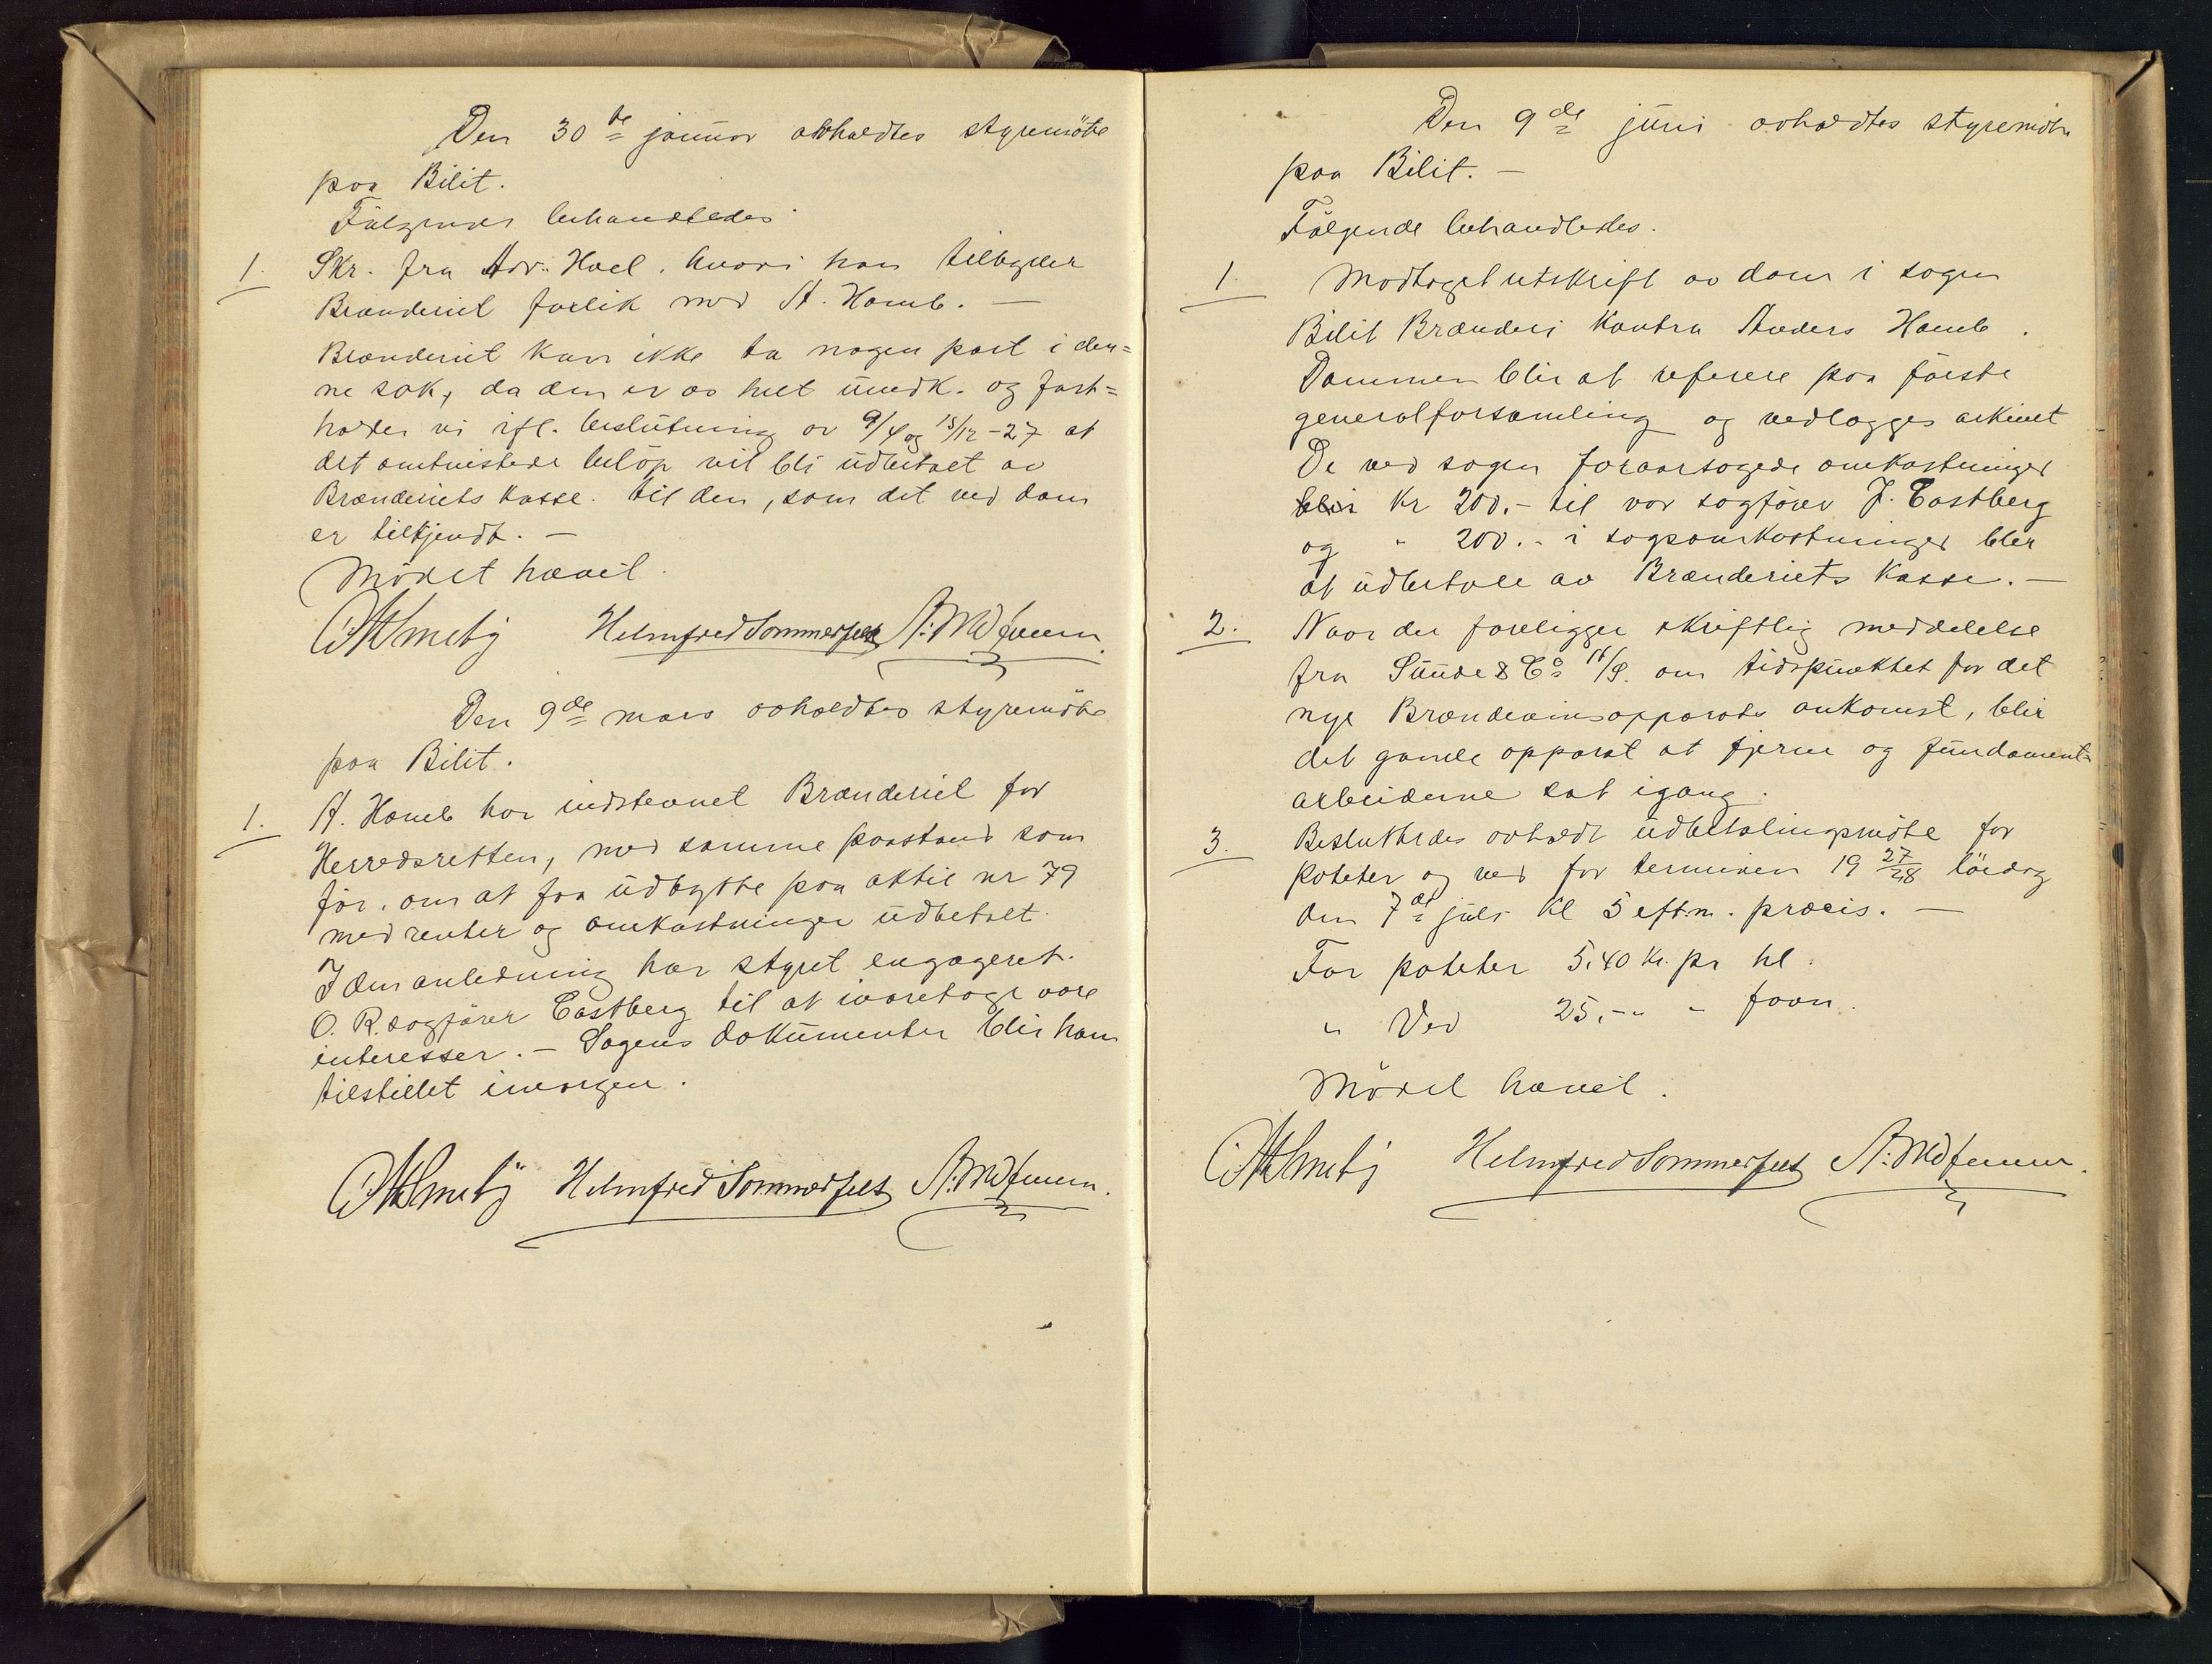 Den 30te januar avholdtes styremöte
paa Bilit.
Fölgende behandledes
1. Skr. fra Adv. Hoel, hvori han tilbyder
Brænderiet forlik med A. Homb. —
Brænderiet kan ikke ta nogen part i den=
ne sak, da den er os helt uvedk. og fast=
holder vi ifl. beslutning av 9/4 og 15/12 - 27 at
det omtvistede belöp vil bli udbetalt av
Brænderiets kasse til den, som det ved dom
er tilkjendt. —
Mödet hævet.
Helmfred Sommerfelt
Den 9de mars avholdtes styremöte
paa Bilit.
1. A. Homb har indstevnet Brænderiet for
Herredsretten, med samme paastand som
för, om at faa udbytte paa aktie nr 79
med renter og omkostninger udbetalt.
I den anledning har styret engageret
O. R. sagförer Castberg til at ivaretage vore
interesser. — Sagens dokumenter blir ham
tilstillet imorgen.
Helmfred Sommerfelt
Den 9de juni avholdtes styremöte
paa Bilit. —
Fölgende behandledes.
1. Modtaget utskrift av dom i sagen
Bilit Brænderi kontra Anders Homb.
Dommen blir at referere paa förste
generalforsamling og vedlægges arkivet
De ved sagen foraarsagede omkostninger
blir kr 200.- til vor sagförer J. Castberg
og " 200.- i sagsomkostninger blir
at udbetale av Brænderiets kasse. —
2. Naar der foreligger skriftlig meddelelse
fra Sunde & Co A/S. om tidspunktet for det
nye Brændevinsapparats ankomst, blir
det gamle apparat at fjerne og fundament=
arbeiderne sat igang.
3. Besluttedes avholdt udbetalingsmöte for
poteter og ved for terminen 19 27/28 lördag
den 7de juli kl 5 eftm. præcis. —
For poteter 5.40 kr. pr hl.
" Ved 25,- " " favn.
Mödet hævet.
Helmfred Sommerfelt